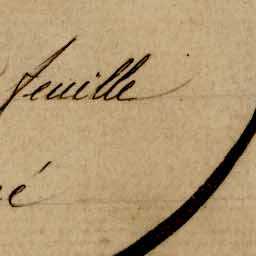 feuille
é